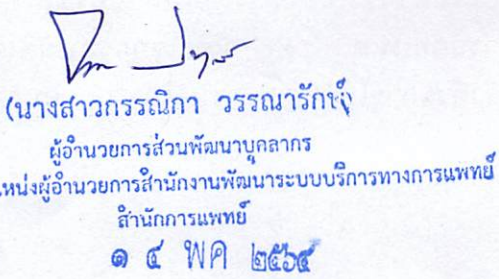 (นางสาวกรรณิกา วรรณารักษ์)
ผู้อำนวยการส่วนพัฒนาบุคลากร
หน่งผู้อำนวยการสำนักงานพัฒนาระบบบริการทางการแพทย์
สำนักการแพทย์
๑ ๔ พค ๒๕๖๔